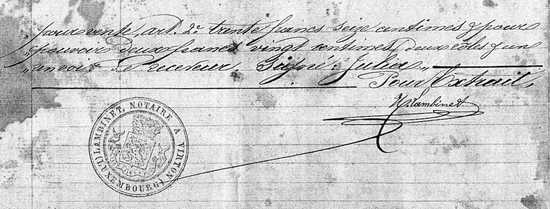 pour vente art. 2e trente francs seize centimes & pour
pouvoir deux francs vingt centimes, deux rôles & un
renvoi Le Receveur, Signé: Julien
Pour Extrait,
N. Lambinet
N. LAMBINET, NOTAIRE A VIRTON (LUXEMBOURG)